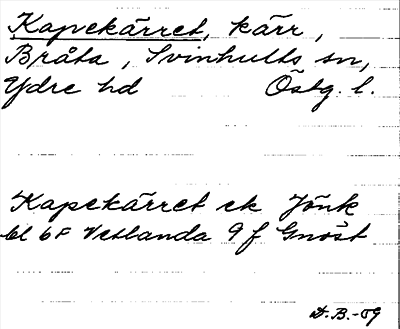 Kapekärret, kärr,
Bråta, Svinhults sn,
Ydre hd Östg. l.
Kapekärret ek Jönk
bl 6F Vetlanda 9f Gnöst
D.B.-09